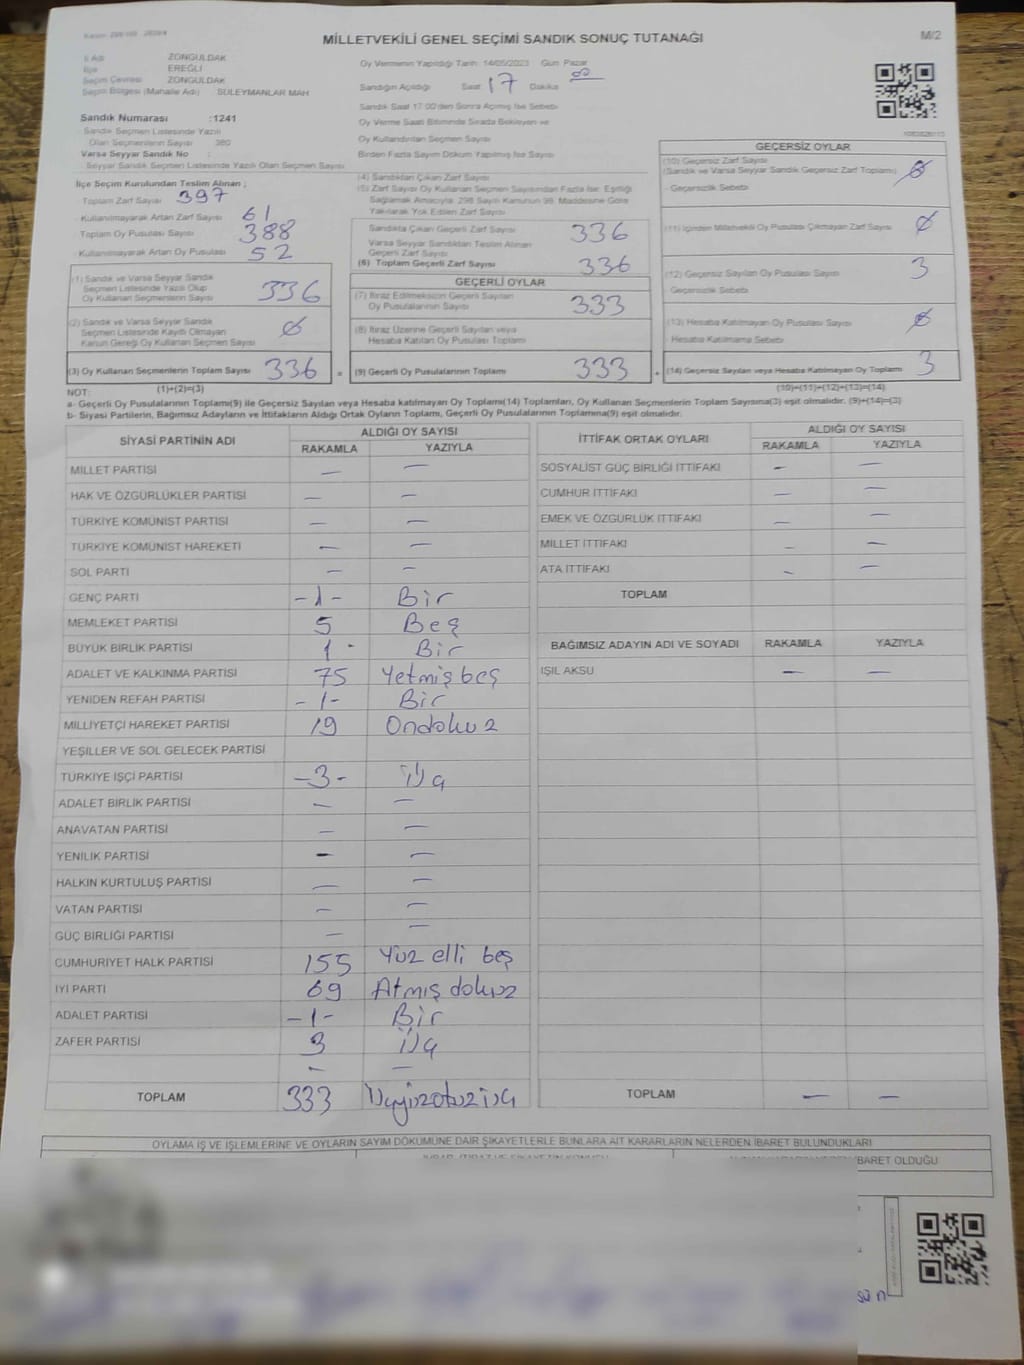 MİLLETVEKİLİ GENEL SEÇİMİ SANDIK SONUÇ TUTANAĞI
M/2
İl Adı ZONGULDAK
İlçe EREĞLİ
Seçim Çevresi ZONGULDAK
Seçim Bölgesi (Mahalle Adı) SÜLEYMANLAR MAH
Sandık Numarası :1241
Sandık Seçmen Listesinde Yazılı
Olan Seçmenlerin Sayısı 380
Varsa Seyyar Sandık No :
Seyyar Sandık Seçmen Listesinde Yazılı Olan Seçmen Sayısı
Oy Vermenin Yapıldığı Tarih: 14/05/2023 Gün: Pazar
Sandığın Açıldığı Saat 17 Dakika 00
Sandık Saat 17.00'den Sonra Açılmış İse Sebebi
Oy Verme Saati Bitiminde Sırada Bekleyen ve
Oy Kullandırılan Seçmen Sayısı
Birden Fazla Sayım Döküm Yapılmış İse Sayısı
İlçe Seçim Kurulundan Teslim Alınan ;
- Toplam Zarf Sayısı 397
- Kullanılmayarak Artan Zarf Sayısı 61
- Toplam Oy Pusulası Sayısı 388
- Kullanılmayarak Artan Oy Pusulası 52
(1) Sandık ve Varsa Seyyar Sandık
Seçmen Listesinde Yazılı Olup
Oy Kullanan Seçmenlerin Sayısı 336
(2) Sandık ve Varsa Seyyar Sandık
Seçmen Listesinde Kayıtlı Olmayan
Kanun Gereği Oy Kullanan Seçmen Sayısı 0
(3) Oy Kullanan Seçmenlerin Toplam Sayısı 336 =
(1)+(2)=(3)
(4) Sandıktan Çıkan Zarf Sayısı
(5) Zarf Sayısı Oy Kullanan Seçmen Sayısından Fazla İse, Eşitliği
Sağlamak Amacıyla, 298 Sayılı Kanunun 98. Maddesine Göre
Yakılarak Yok Edilen Zarf Sayısı
Sandıkta Çıkan Geçerli Zarf Sayısı 336
Varsa Seyyar Sandıktan Teslim Alınan
Geçerli Zarf Sayısı
(6) Toplam Geçerli Zarf Sayısı 336
GEÇERLİ OYLAR
(7) İtiraz Edilmeksizin Geçerli Sayılan
Oy Pusulalarının Sayısı 333
(8) İtiraz Üzerine Geçerli Sayılan veya
Hesaba Katılan Oy Pusulası Toplamı
(9) Geçerli Oy Pusulalarının Toplamı 333 +
GEÇERSİZ OYLAR
(10) Geçersiz Zarf Sayısı
(Sandık ve Varsa Seyyar Sandık Geçersiz Zarf Toplamı) 0
- Geçersizlik Sebebi
(11) İçinden Milletvekili Oy Pusulası Çıkmayan Zarf Sayısı 0
(12) Geçersiz Sayılan Oy Pusulası Sayısı 3
- Geçersizlik Sebebi
(13) Hesaba Katılmayan Oy Pusulası Sayısı 0
- Hesaba Katılmama Sebebi
(14) Geçersiz Sayılan veya Hesaba Katılmayan Oy Toplamı 3
(10)+(11)+(12)+(13)=(14)
NOT:
a- Geçerli Oy Pusulalarının Toplamı(9) ile Geçersiz Sayılan veya Hesaba katılmayan Oy Toplamı(14) Toplamları, Oy Kullanan Seçmenlerin Toplam Sayısına(3) eşit olmalıdır. (9)+(14)=(3)
b- Siyasi Partilerin, Bağımsız Adayların ve İttifakların Aldığı Ortak Oyların Toplamı, Geçerli Oy Pusulalarının Toplamına(9) eşit olmalıdır.
SİYASİ PARTİNİN ADI
ALDIĞI OY SAYISI
RAKAMLA YAZIYLA
MİLLET PARTİSİ — —
HAK VE ÖZGÜRLÜKLER PARTİSİ — —
TÜRKİYE KOMÜNİST PARTİSİ — —
TÜRKİYE KOMÜNİST HAREKETİ — —
SOL PARTİ — —
GENÇ PARTİ -1- Bir
MEMLEKET PARTİSİ 5 Beş
BÜYÜK BİRLİK PARTİSİ 1 Bir
ADALET VE KALKINMA PARTİSİ 75 Yetmiş beş
YENİDEN REFAH PARTİSİ -1- Bir
MİLLİYETÇİ HAREKET PARTİSİ 19 Ondokuz
YEŞİLLER VE SOL GELECEK PARTİSİ
TÜRKİYE İŞÇİ PARTİSİ -3- Üç
ADALET BİRLİK PARTİSİ — —
ANAVATAN PARTİSİ — —
YENİLİK PARTİSİ — —
HALKIN KURTULUŞ PARTİSİ — —
VATAN PARTİSİ — —
GÜÇ BİRLİĞİ PARTİSİ — —
CUMHURİYET HALK PARTİSİ 155 Yüz elli beş
İYİ PARTİ 69 Atmış dokuz
ADALET PARTİSİ -1- Bir
ZAFER PARTİSİ 3 Üç
— —
TOPLAM 333 Üçyüzotuzüç
İTTİFAK ORTAK OYLARI
ALDIĞI OY SAYISI
RAKAMLA YAZIYLA
SOSYALİST GÜÇ BİRLİĞİ İTTİFAKI — —
CUMHUR İTTİFAKI — —
EMEK VE ÖZGÜRLÜK İTTİFAKI — —
MİLLET İTTİFAKI — —
ATA İTTİFAKI — —
TOPLAM
BAĞIMSIZ ADAYIN ADI VE SOYADI RAKAMLA YAZIYLA
IŞIL AKSU — —
TOPLAM — —
OYLAMA İŞ VE İŞLEMLERİNE VE OYLARIN SAYIM DÖKÜMÜNE DAİR ŞİKAYETLERLE BUNLARA AİT KARARLARIN NELERDEN İBARET BULUNDUKLARI
İBARET OLDUĞU